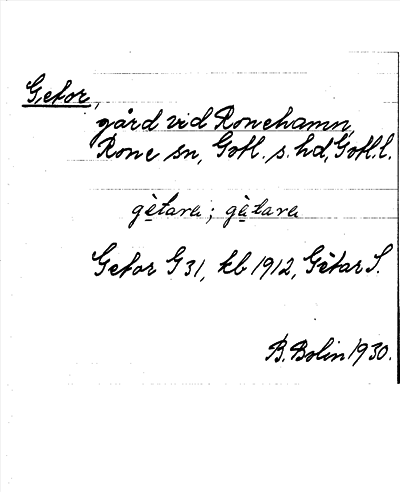 Getor,
gård vid Ronehamn,
Rone sn, Gotl. s. hd, Gotl. l.
gètara; gàtara
Getor G 31, kb 1912, Gètar S.
B. Bolin 1930.